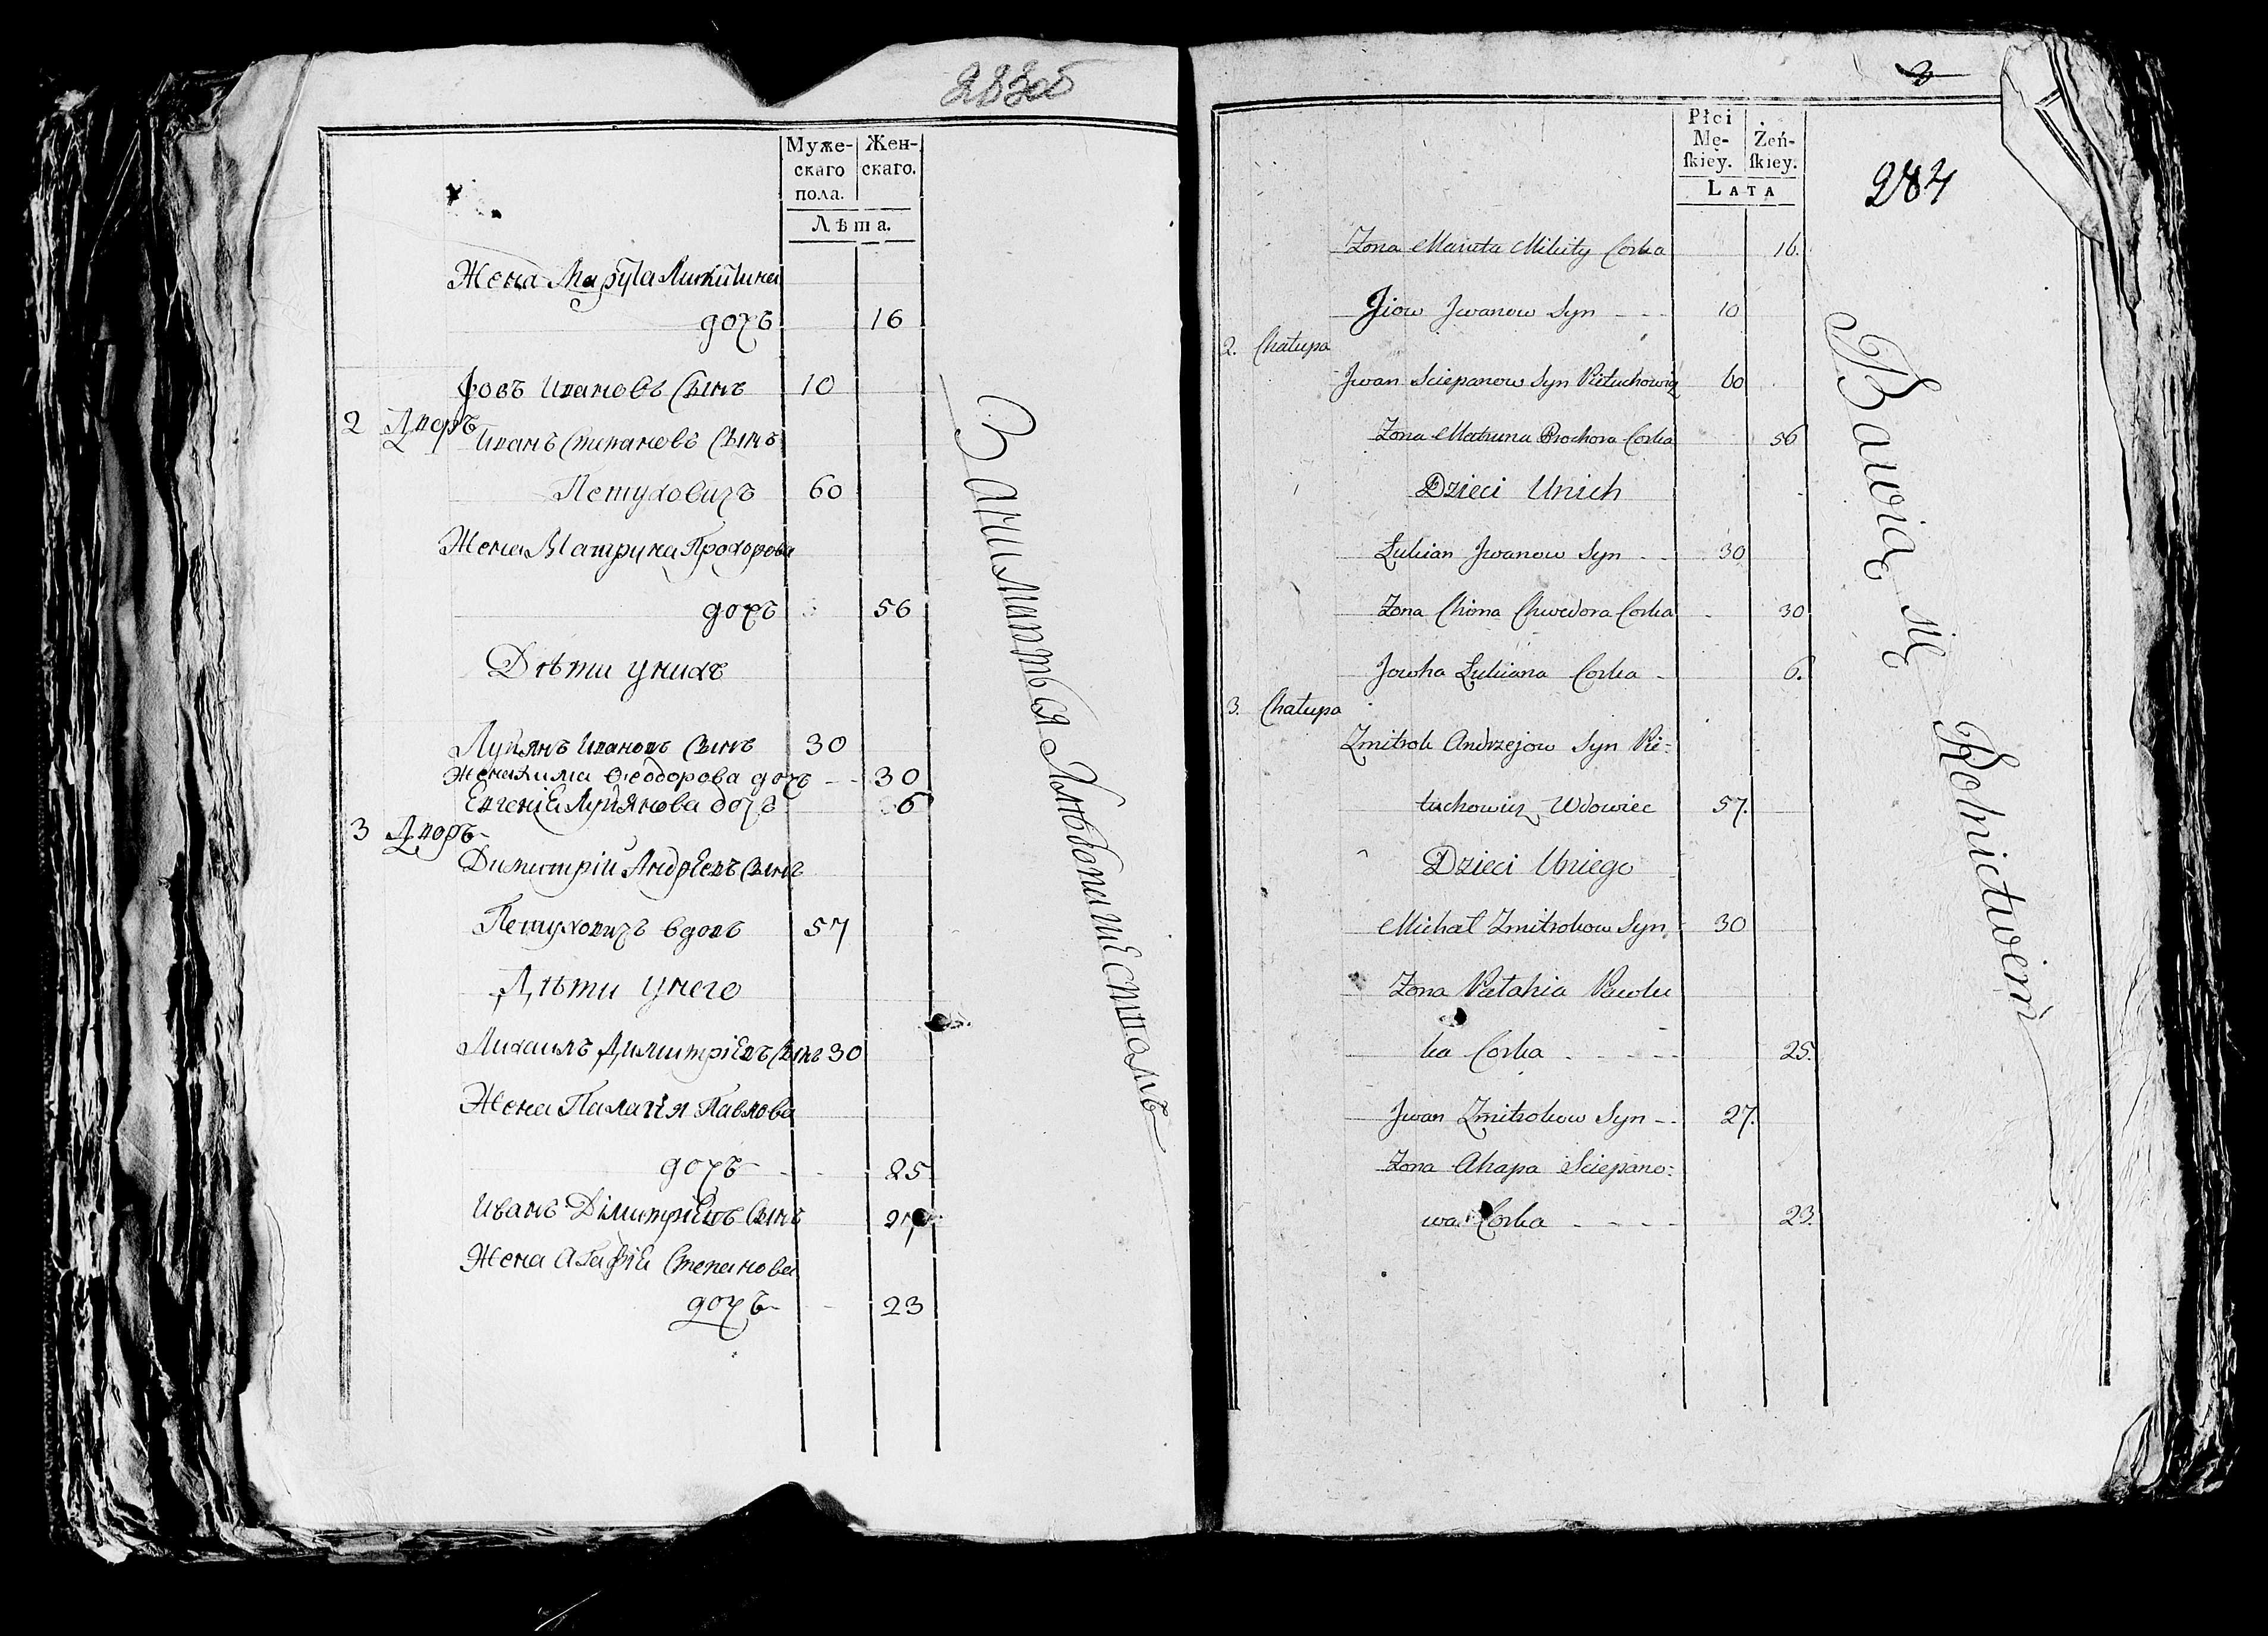 283об
Муже-
скаго
пола.
Жен-
скаго.
Лѣта.
Жена Марута Микитина
дочъ 16
Іовъ Ивановъ Сынъ 10
2 Дворъ
Иванъ Степановъ Сынъ
Петуховичъ 60
Жена Матруна Прохорова
дочъ 56
Дѣти у нихъ
Лукянъ Ивановъ Сынъ 30
Жена Хима Ѳеодорова дочъ 30
Евгенiя Лукянова дочъ 6
3 Дворъ
Димитрій Андреевъ Сынъ
Петуховичъ вдовъ 57
Дѣти у него
Михаилъ Димитріевъ Сынъ 30
Жена Палагія Павлова
дочъ 25
Иванъ Дімитріевъ Сынъ 27
Жена Агафія Степанова
дочъ 23
Занимаются Хлѣбопашествомъ
3
284
Płci
Mę-
ſkiey.
Żeń-
ſkiey.
LATA
Zona Maruta Mikity Corka 16.
Jiow Jwanow Syn 10
2. Chałupa
Jwan Sciepanow Syn Pietuchowicz 60
Zona Matruna Prochora Corka 56
Dzieci Unich
Łukian Jwanow Syn 30
Zona Chima Chwedora Corka 30
Jowha Łukiana Corka 6.
3. Chałupa
Zmitrok Andrzejow Syn Pie=
tuchowicz Wdowiec 57.
Dzieci Uniego
Michał Zmitrokow Syn 30
Zona Pałahia Pawlu
ka Corka 25.
Jwan Zmitrokow Syn 27.
Zona Ahapa Sciepano=
wa Corka 23.
Bawią się Rolnictwem